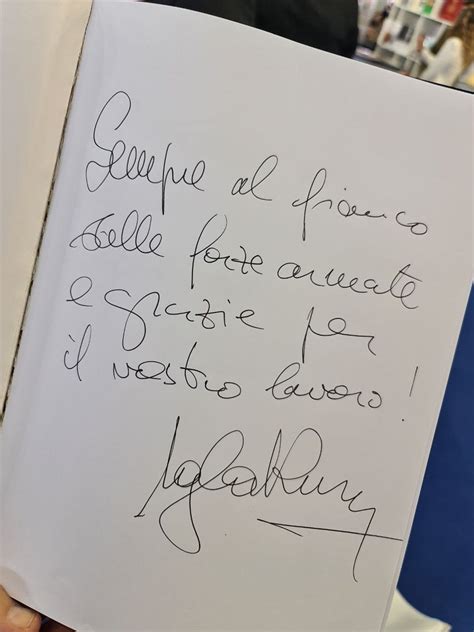 Sempre al fianco
delle forze armate
e grazie per
il vostro lavoro!